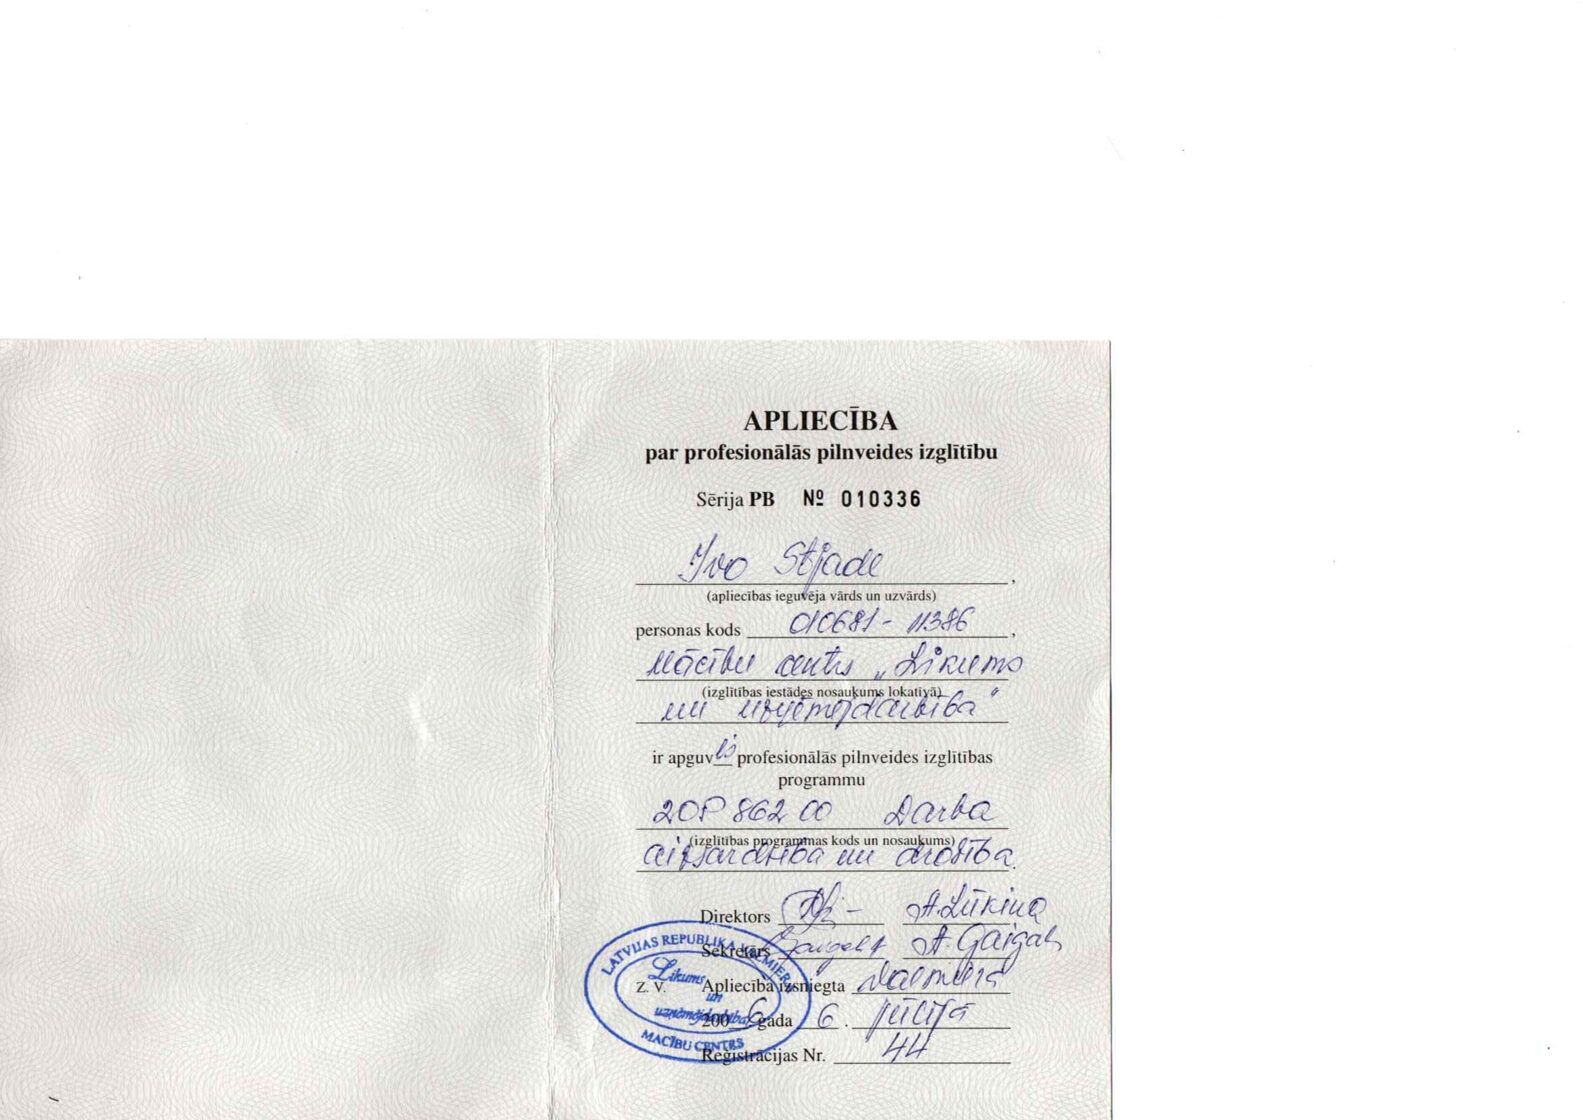 APLIECĪBA
par profesionālās pilnveides izglītību
Sērija PB № 010336
Ivo Stjade,
(apliecības ieguvēja vārds un uzvārds)
personas kods 010681-11386,
Mācību centrs „Likums
(izglītības iestādes nosaukums lokatīvā)
un uzņēmējdarbība"
ir apguvis profesionālās pilnveides izglītības
programmu
20P 862 00 Darba
(izglītības programmas kods un nosaukums)
aizsardzība un drošība.
Direktors A. Lūkina
Sekretārs A. Gaigals
Z. V. Apliecība izsniegta Valmierā
2006 gada 6. jūlijā
Reģistrācijas Nr. 44
LATVIJAS REPUBLIKA
Likums
un
uzņēmējdarbība
MĀCĪBU CENTRS